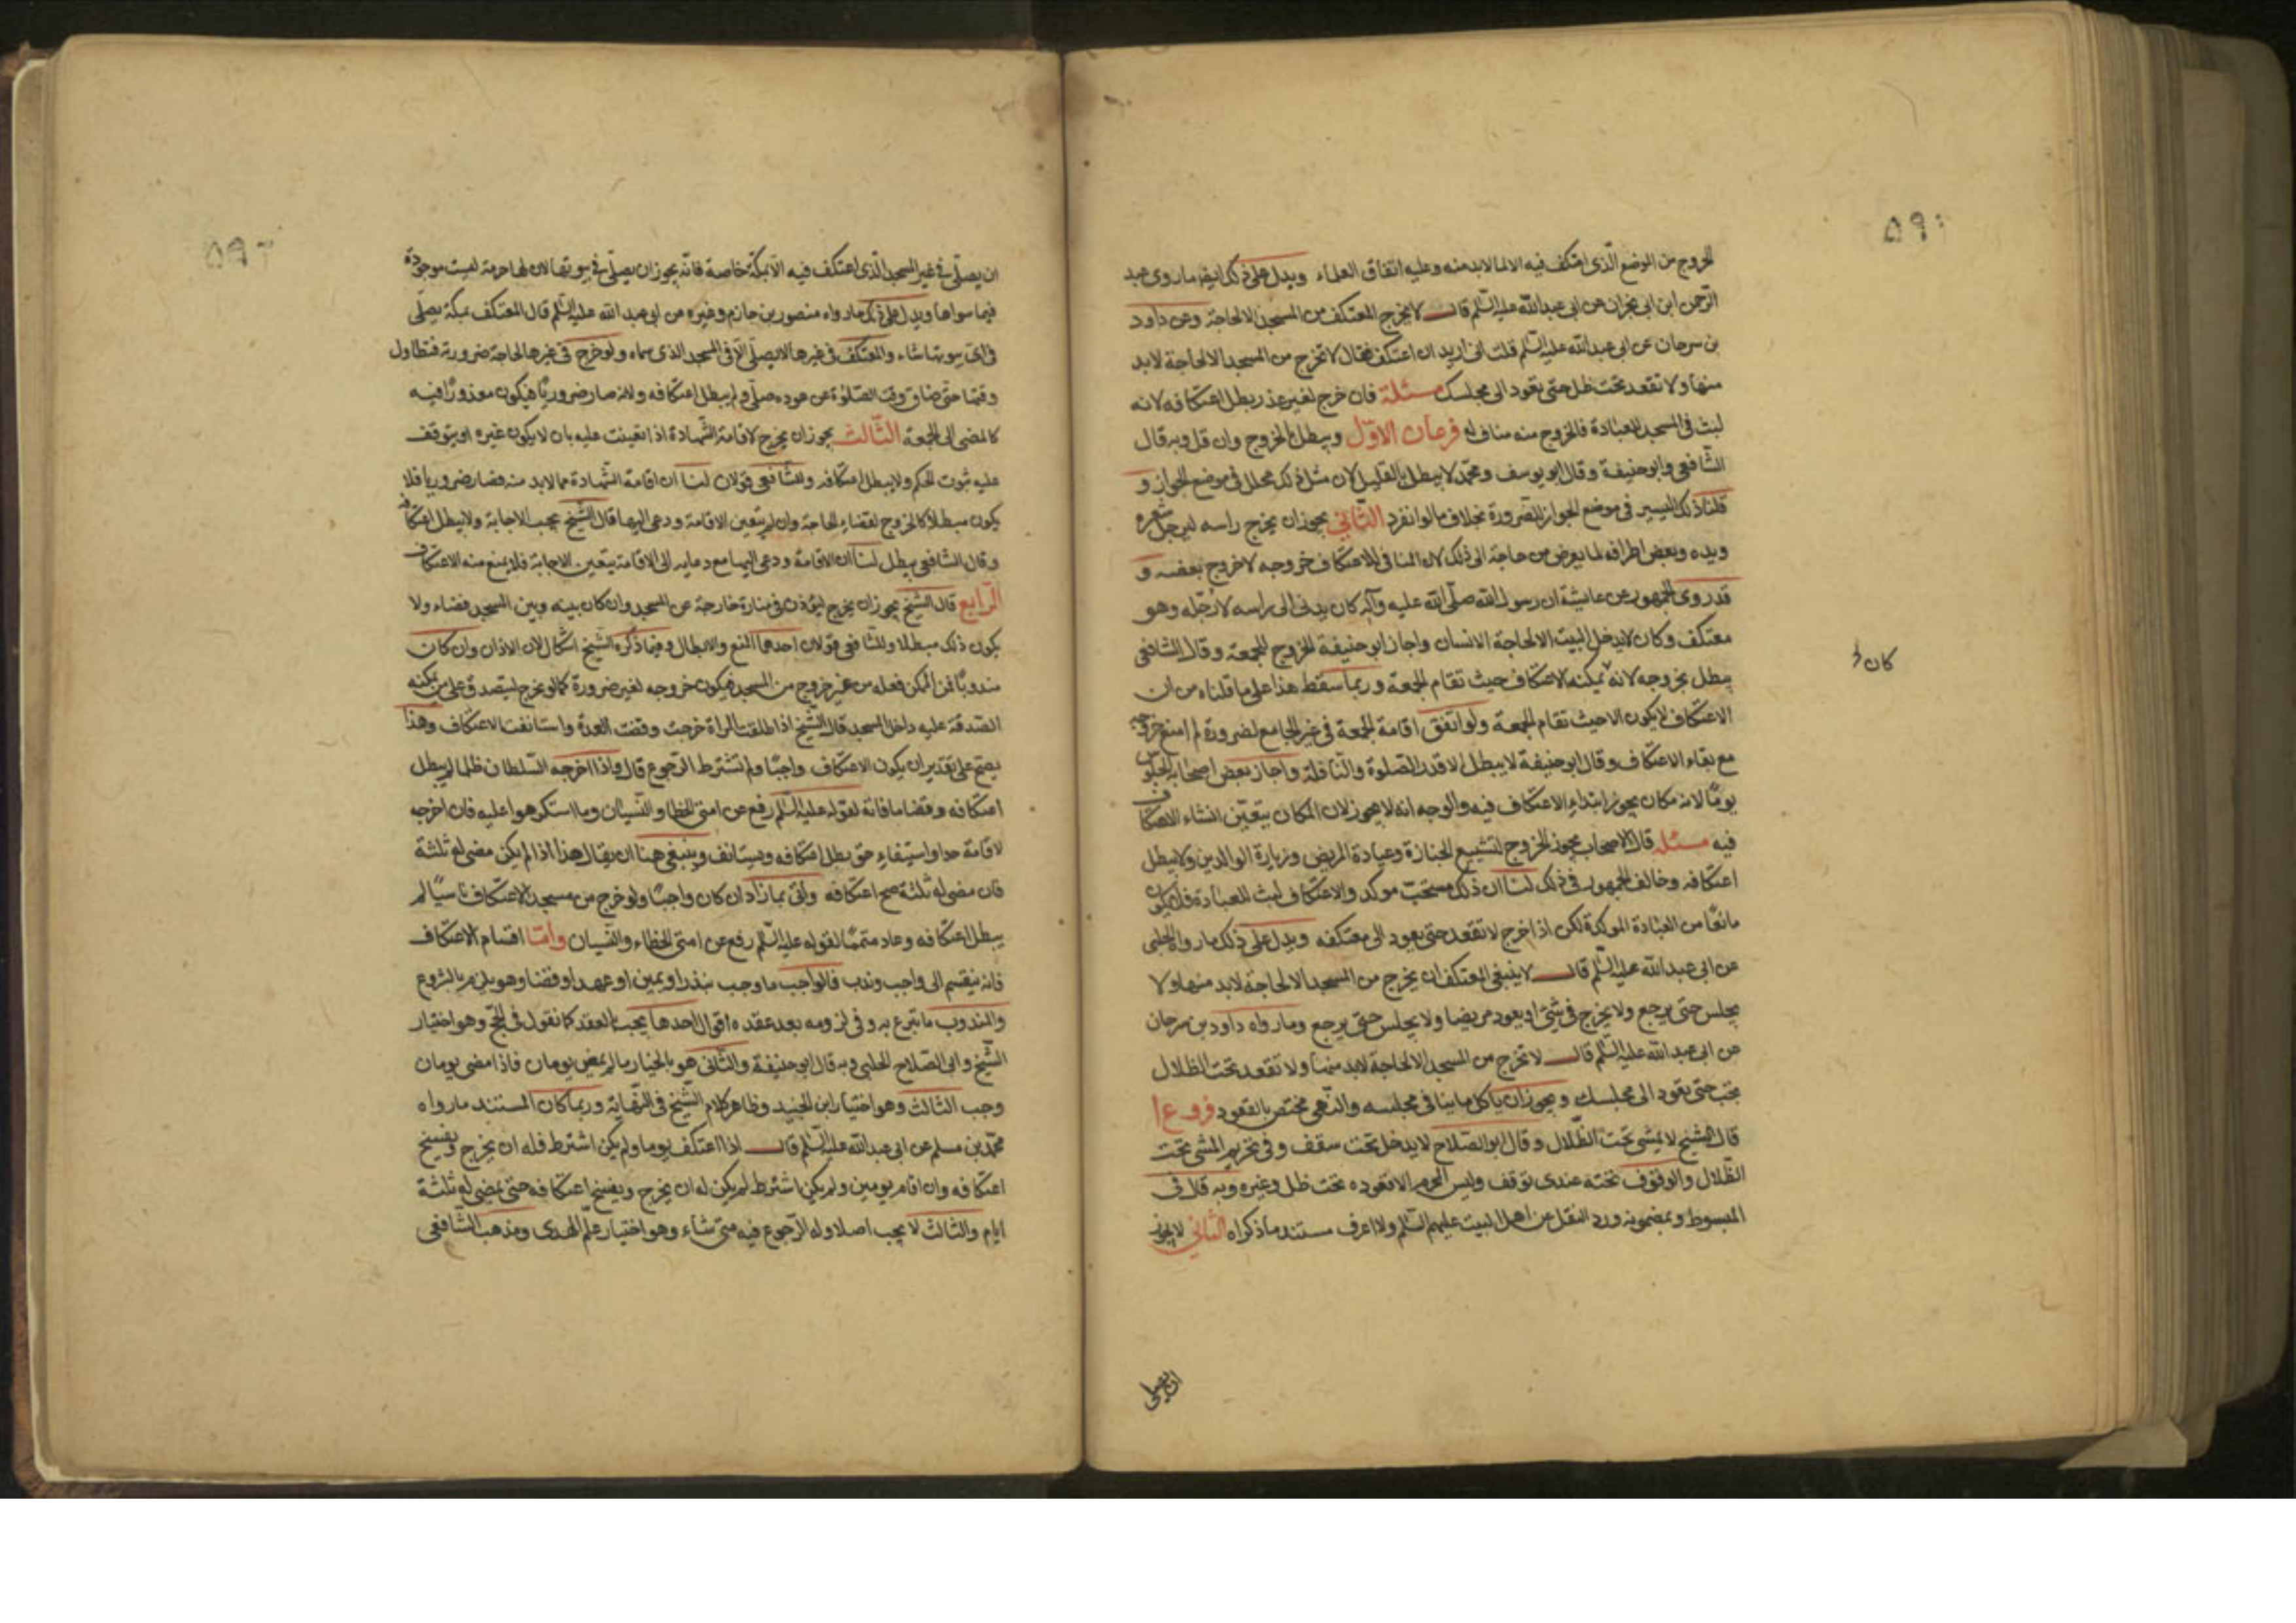 ٥٩٠
الخروج من الموضع الّذى اعتكف فيه الا لما لابد منه وعليه اتفاق العلماء ويدل على ذلك ايضا ما روى عبد
الرّحمن ابن ابى نجران عن ابى عبدالله عليه السّلم قال لا يخرج المعتكف من المسجد الا لحاجة وعن داود
بن سرحان عن ابى عبدالله عليه السّلم قلت انى اريد ان اعتكف فقال لا تخرج من المسجد الا لحاجة لابد
منها ولا تقعد تحت ظل حتى تعود الى مجلسك مسئلة فان خرج لغير عذر بطل اعتكافه لانه
لبث فى المسجد للعبادة فالخروج منه مناف له فرعان الاوّل ويبطل بالخروج وان قل وبه قال
الشّافعى وابوحنيفة وقال ابو يوسف ومحمّد لا يبطل بالقليل لان مثل ذلك محلل فى موضع الجواز و
قلنا ذلك اليسير فى موضع الجواز للضرورة بخلاف ما لو انفرد الثّانى يجوز ان يخرج راسه ليرجل شعره
ويده وبعض اطرافه لما يعرض من حاجة الى ذلك لان المنافى للاعتكاف خروجه لا خروج بعضه و
قد روى الجمهور عن عايشة ان رسول الله صلّى الله عليه وآله كان يدنى الى راسه لارجّله وهو
معتكف وكان لا يدخل البيت الا لحاجة الانسان واجاز ابو حنيفة الخروج للجمعة وقال الشافعى
كان
يبطل بخروجه لانه يمكنه الاعتكاف حيث تقام الجمعة وربما سقط هذا على ما قلناه من ان
الاعتكاف لا يكون الا حيث تقام الجمعة ولو اتفق اقامة الجمعة فى غير الجامع لضرورة لم امنع خروجه
مع بقاء الاعتكاف وقال ابو حنيفة لا يبطل الا قدر الصّلوة والنّافلة واجاز بعض اصحابه الجلوس
يومًا لانه مكان يجوز ابتداء الاعتكاف فيه والوجه انه لا يجوز لان المكان يتعيّن انشاء الاعتكاف
فيه مسئله قال الاصحاب يجوز الخروج لتشييع الجنازة وعيادة المريض وزيارة الوالدين ولا يبطل
اعتكافه وخالف الجمهور فى ذلك لنا ان ذلك مستحب موكد والاعتكاف لبث للعبادة فلا يكون
مانعًا من العبادة الموكدة لكن اذا خرج لا تقعد حتى يعود الى معتكفه ويدل على ذلك ما رواه الحلبى
عن ابى عبدالله عليه السّلم قال لا ينبغى للمعتكف ان يخرج من المسجد الا لحاجة لابد منها ولا
يجلس حتى يرجع ولا يخرج فى شئ الا يعود مريضا ولا يجلس حتى يرجع وما رواه داود بن سرحان
عن ابى عبدالله عليه السّلم قال لا تخرج من المسجد الا لحاجة لابد منها ولا تقعد تحت الظلال
حتى تعود الى مجلسك ويجوز ان ياكل ماشيا فى مجلسه والنّهى مختص بالقعود فروع ا
قال الشيخ لا يمشى تحت الظّلال وقال ابو الصّلاح لا يدخل تحت سقف وفى تحريم المشى تحت
الظّلال والوقوف تحته عندى توقف وليس المحرم الا قعوده تحت ظل وغيره وبه قال فى
المبسوط وبمضمونه ورد النقل عن اهل البيت عليهم السّلم ولا اعرف مستند ما ذكراه الثانى لا يجوز
ان يصلى
٥٩
ان يصلّى فى غير المسجد الّذى اعتكف فيه الا بمكّة خاصة فانّه يجوز ان يصلّى فى بيوتها لان لها حرمة ليست موجودة
فيما سواها ويدل على ذلك ما رواه منصور بن حازم وغيره عن ابى عبد الله عليه السّلم قال المعتكف بمكة يصلّى
فى اىّ بيوتها شاء والمعتكف فى غيرها لا يصلّى الّا فى المسجد الذى سماه ولو خرج فى غيرها لحاجة ضرورة فتطاول
وقتها حتى ضاق وقت الصّلوة عن عوده صلّى ولم يبطل اعتكافه ولانه صار ضروريًا فيكون معذورًا فيه
كالمضى الى الجمعة الثّالث يجوز ان يخرج لاقامة الشّهادة اذا تعينت عليه بان لا يكون غيره او يتوقف
عليه ثبوت الحكم ولا يبطل اعتكافه وللشّافعى قولان لنا ان اقامة الشّهادة مما لابد منه فصار ضروريا فلا
يكون مبطلا كالخروج لقضاء الحاجة وان لم يتعين الاقامة ودعى اليها قال الشّيخ يجب الاجابة ولا يبطل اعتكافه
وقال الشافعى يبطل لنا ان الاقامة ودعى اليها مع دعايه الى الاقامة يتعين الاجابة فلا يمنع منه الاعتكاف
الرّابع قال الشيخ يجوز ان يخرج ليؤذن فى منارة خارجة عن المسجد وان كان بينه وبين المسجد فضاء ولا
يكون ذلك مبطلا وللشّافعى قولان احدهما المنع والابطال وفيما ذكره الشّيخ اشكال لان الاذان وان كان
مندوبًا فمن الممكن فعله من غير خروج من المسجد فيكون خروجه لغير ضرورة كما لو خرج ليتصدق على من يمكنه
الصّدقة عليه داخل المسجد قال الشّيخ اذا طلقت المراة خرجت وقضت العدة واستانفت الاعتكاف وهذا
يصحّ على تقدير ان يكون الاعتكاف واجبًا ولم تشترط الرّجوع قال واذا اخرجه السّلطان ظلما لم يبطل
اعتكافه وقضا ما فاته لقوله عليه السّلم رفع عن امتى الخطا والنّسيان وما استكرهوا عليه فان اخرجه
لاقامة حد او استيفاء حق بطل اعتكافه ويستانف وينبغى هنا ان يقال هذا اذا لم يكن مضى له ثلثة
فان مضى له ثلثة صح اعتكافه واتى بما زاد ان كان واجبًا ولو خرج من مسجد الاعتكاف ناسيًا لم
يبطل اعتكافه وعاد متممًا لقوله عليه السّلم رفع عن امتى الخطاء والنّسيان وامّا اقسام الاعتكاف
فانه ينقسم الى واجب وندب فالواجب ما وجب بنذر او يمين او عهد او قضا وهو يلزم بالشروع
والمندوب ما تبرع به وفى لزومه بعد عقده اقوال احدها يجب بالعقد كما نقول فى الحجّ وهو اختيار
الشّيخ وابى الصّلاح الحلبى وبه قال ابو حنيفة والثّانى هو بالخيار ما لم يمض يومان فاذا مضى يومان
وجب الثالث وهو اختيار ابن الجنيد وظاهر كلام الشّيخ فى النّهاية وربما كان المستند ما رواه
محمّد بن مسلم عن ابى عبدالله عليه السّلم قال اذا اعتكف يوما ولم يكن اشترط فله ان يخرج ويفسخ
اعتكافه وان اقام يومين ولم يكن اشترط لم يكن له ان يخرج ويفسخ اعتكافه حتى يمضى له ثلثة
ايام والثالث لا يجب اصلا وله الرّجوع فيه متى شاء وهو اختيار علم الهدى ومذهب الشّافعى